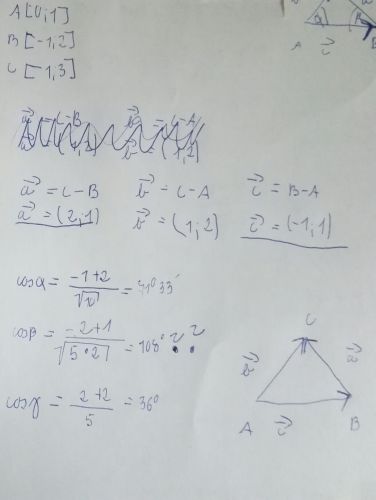 A [0;1]
B [-1,2]
C [-1,3]
a⃗ = C-B b⃗ = C-A c⃗ = B-A
a⃗ = (2;1) b⃗ = (1;2) c⃗ = (-1;1)
cosα = -1+2 / = 33'
cosβ = -2+1 / √5·2 = 108° ? ?
cosγ = 2+2 / 5 = 36°
α β
A c⃗ B
C
b⃗ a⃗
A c⃗ B